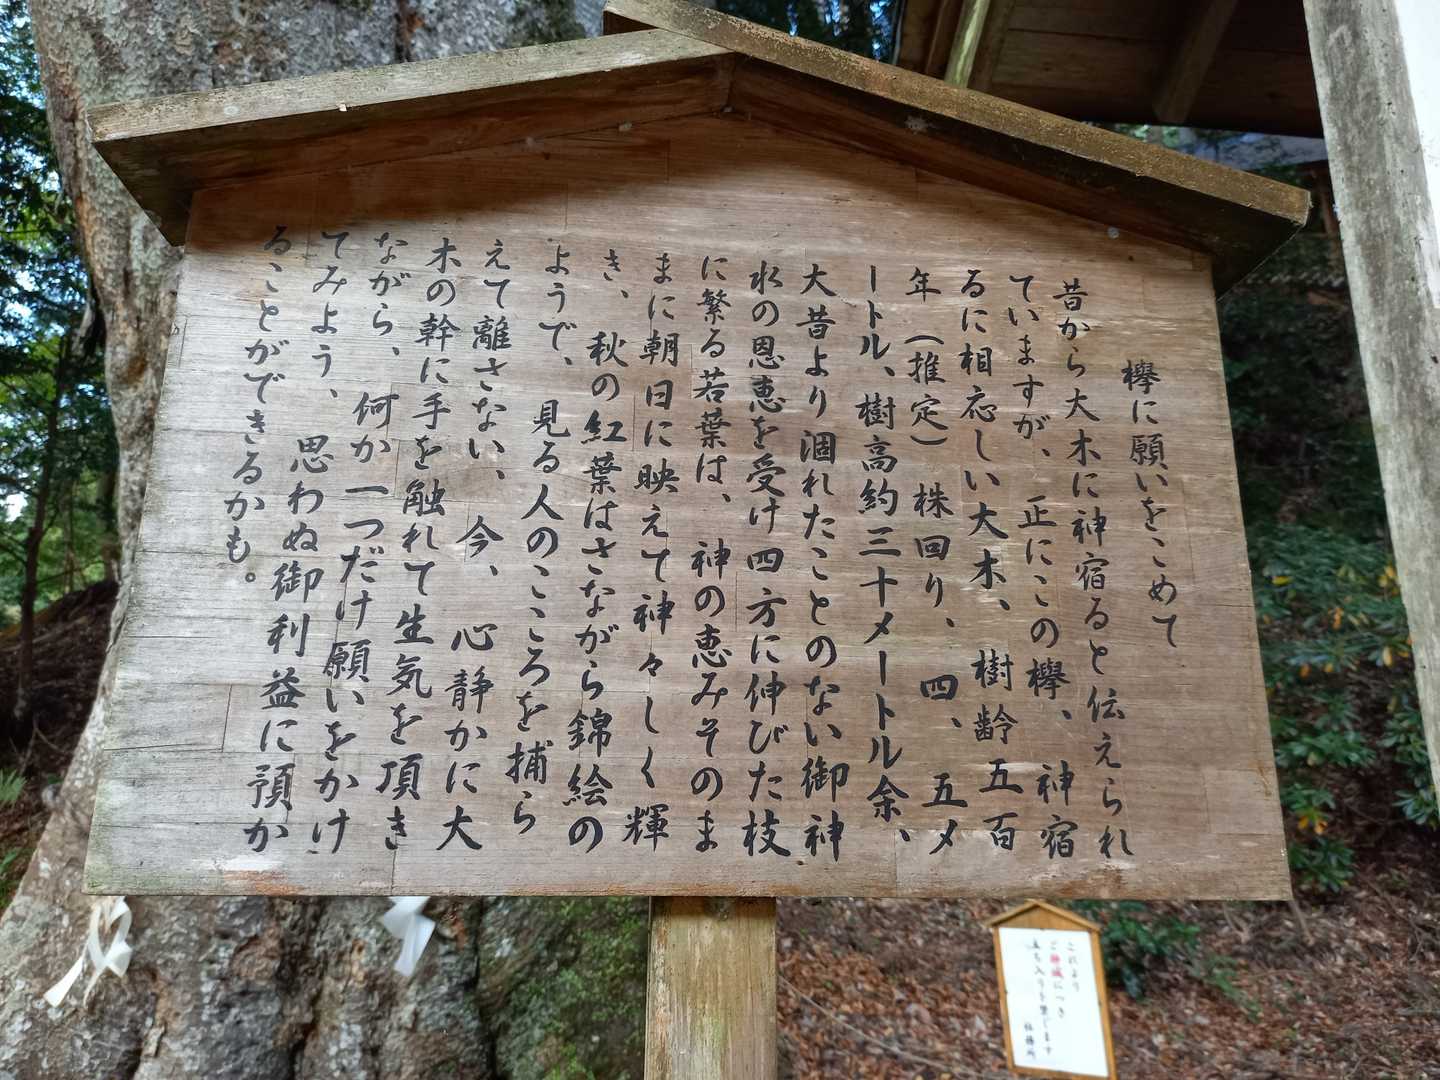 欅に願いをこめて
昔から大木に神宿ると伝えられ
ていますが、正にこの欅、神宿
るに相応しい大木、樹齢五百
年（推定）株回り、四、五メ
ートル、樹高約三十メートル余、
大昔より涸れたことのない御神
水の恩恵を受け四方に伸びた枝
に繁る若葉は、神の恵みそのま
まに朝日に映えて神々しく輝
き、秋の紅葉はさながら錦絵の
ようで、見る人のこころを捕ら
えて離さない、今、心静かに大
木の幹に手を触れて生気を頂き
ながら、何か一つだけ願いをかけ
てみよう、思わぬ御利益に預か
ることができるかも。
これより
ご神域につき
立ち入りを禁じます
社務所